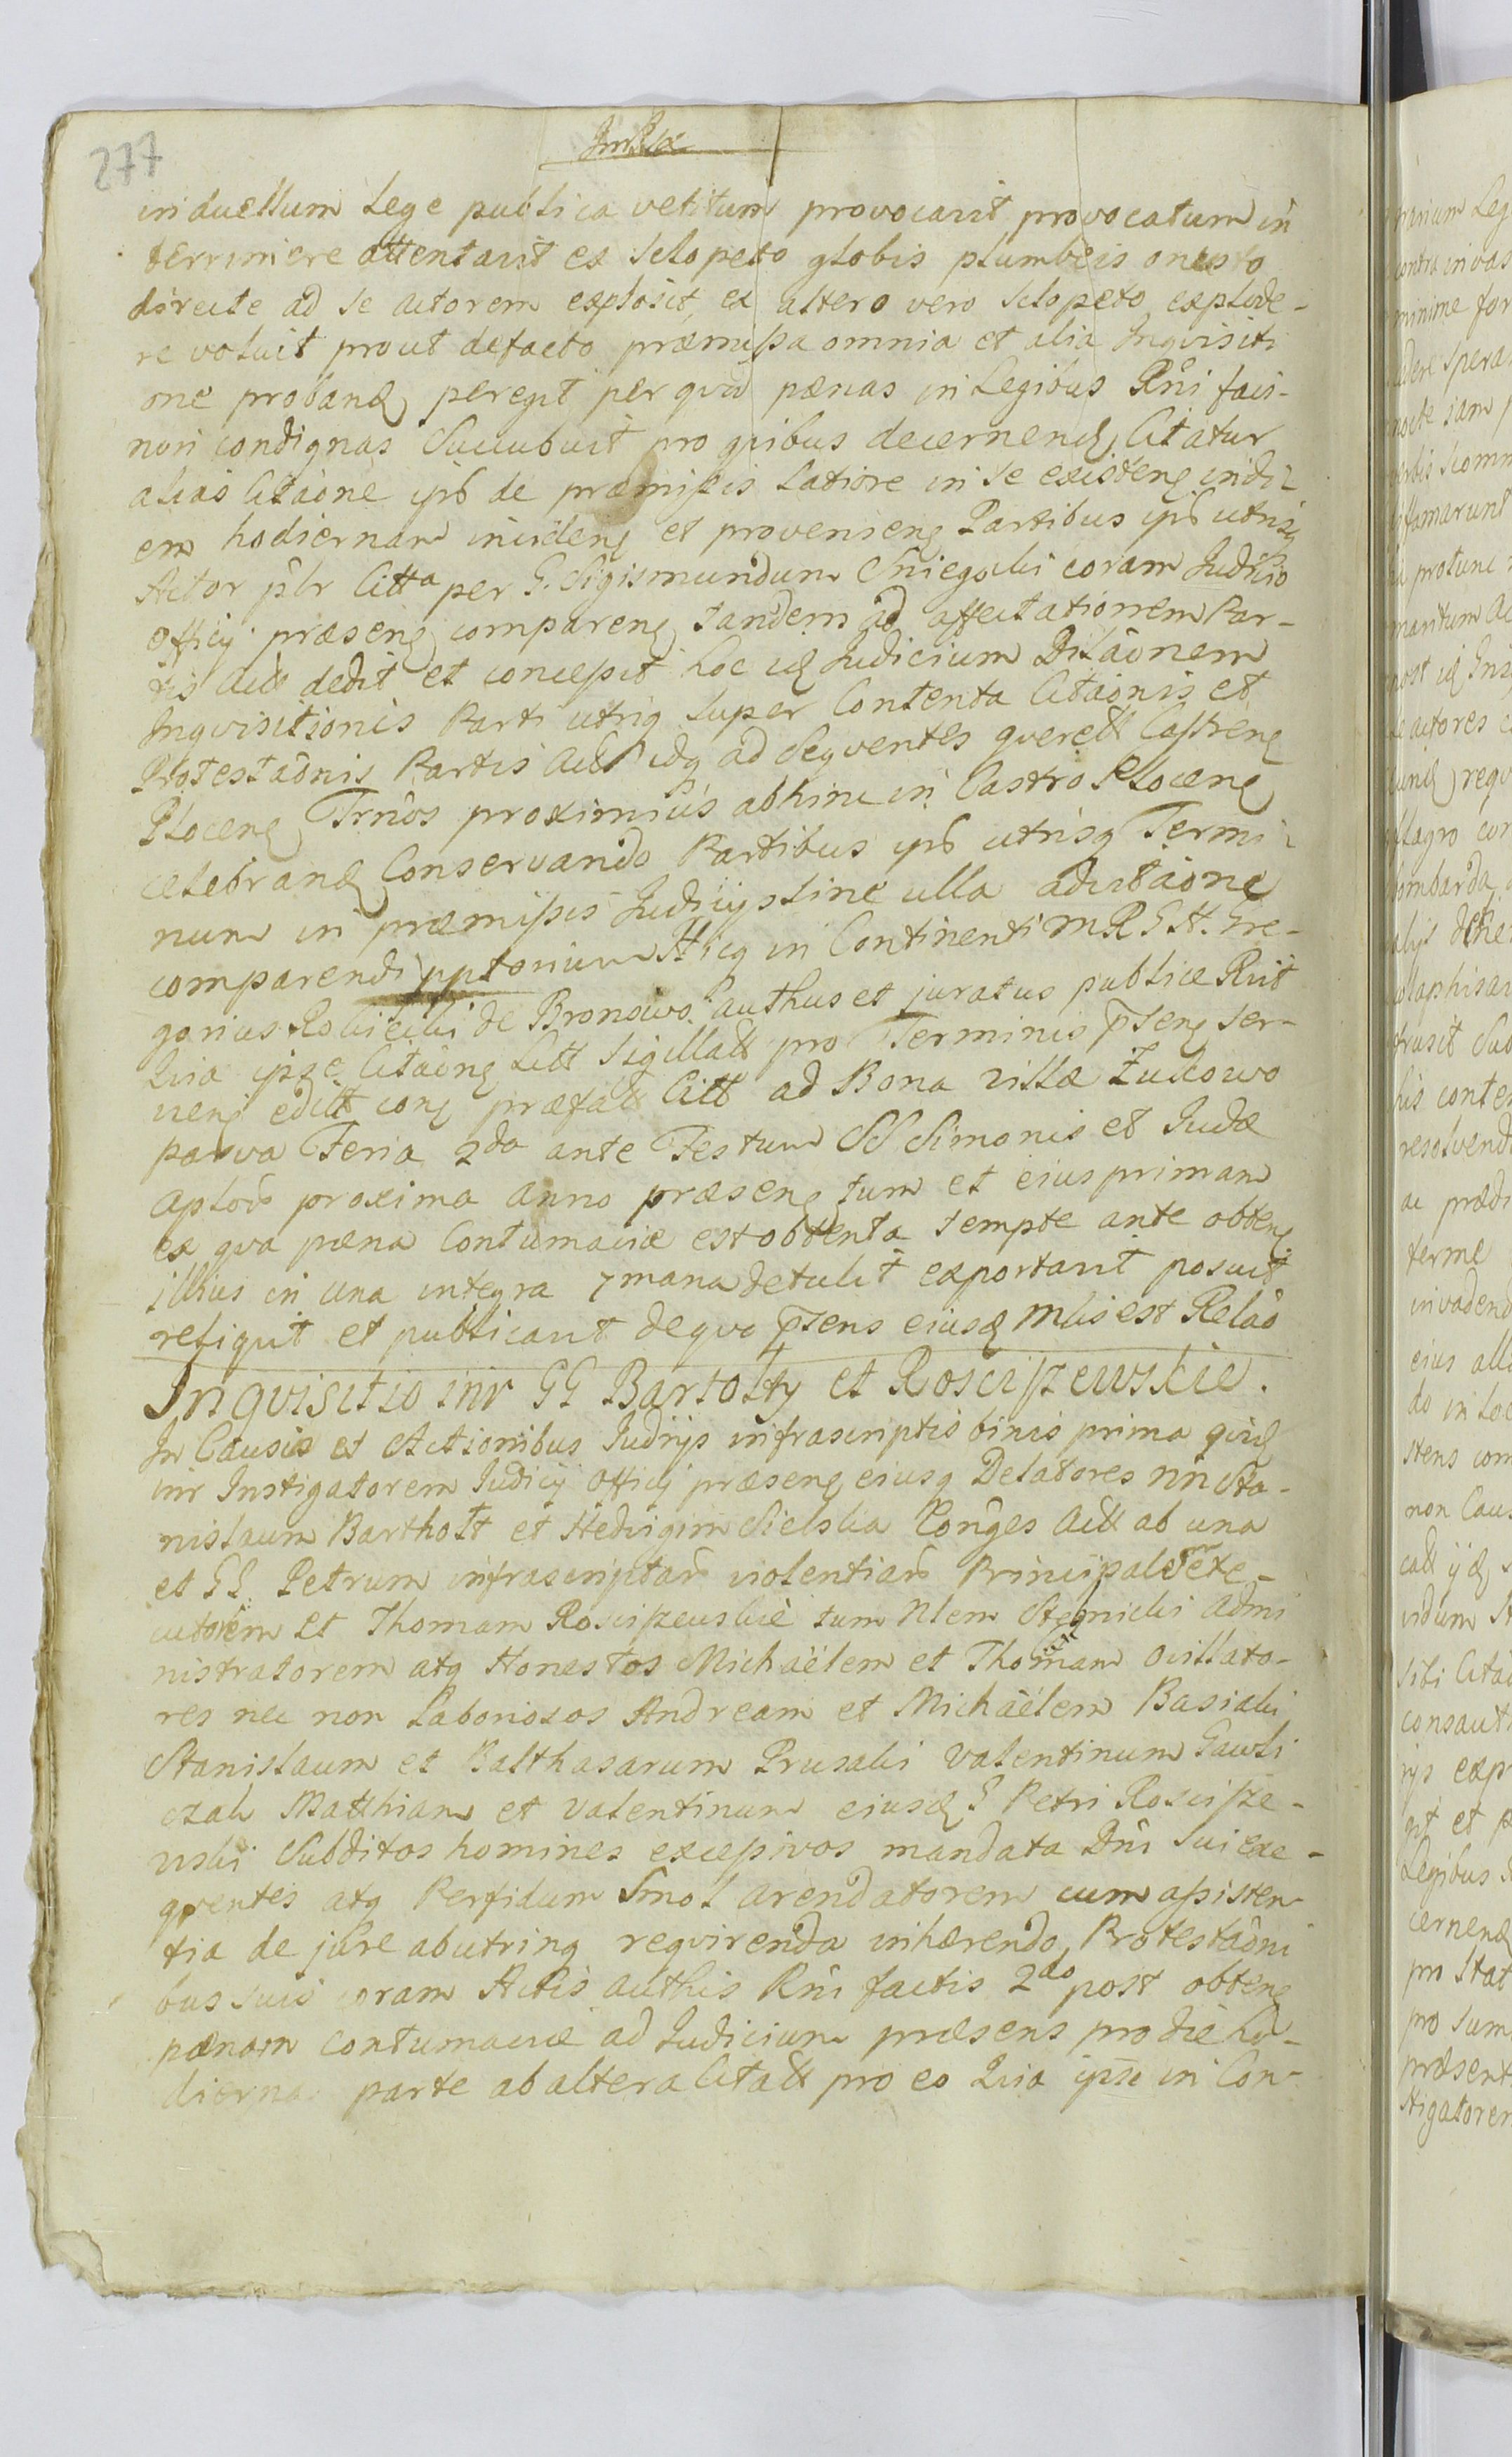 277
in duellum Lege publica vetitum provocavit provocatum in
terrimere attentavit ex sclopeto globis plumbeis onusto
directe ad se actorem explosit, ex altero vero sclopeto explode-
re voluit prout defacto præmissa omnia et alia Inqvisiti
one proband peregit per qvod pænas in Legibus Rni faci-
nori condignas Succubuit pro qvibus decernend Citatur
alias Citaone ipso de præmissis latiore in se existen in di-
em hodiernam inciden et provenien Partibus ipsis utrisq
Actor plr Citta per G. Sigismundum Sniegocki coram Judicio
officij præsen comparen tandem ad affectationem Par-
tis Act dedit et concessit hoc id Judicium Dilaonem
Inqvisitionis Parti utriq super Contenta Citaonis et
Protestaonis Partis Act idq ad seqventes qverel Castren
Plocen Trnos proximius abhinc in Castro Plocen
celebrand Conservando Partibus ipsis utrisq Termi-
num in præmissis Judicijs sine ulla adcitaone
comparendi pptorium Hicq in Continenti MRGH. Gre-
gorius Robiecki de Bronowo authus et juratus publice Rvit
Qvia ipse Citaone Litt sigillatt pro Terminis psen ser-
vien editt con præfatt Citt ad Bona villæ Zukowo
parva Feria 2da ante Festum SS Simonis et Judæ
Aplor proxima anno præsen tum et eius primam
ex qva pæna Contumaciæ est obtenta sempte ante obten
illius in una integra 7mana detulit exportavit posuit
refiqit et publicavit de qvo psens eiusd Mlis est Relao
Inqvisitio inr GG Bartolty et Rosciszewskie.
In Causis et Actionibus Judijs infrascriptis binis prima qvid
inr Instigatorem Judicij Officij præsen eiusq Delatores NN Sta-
nislaum Bartholt et Hedvigim Sielska Conges Act ab una
et GG. Petrum infrascriptar violentiar Principalem exe-
cutorem et Thomam Rosciszewskie tum Nlem Stegnicki Admi
nistratorem atq Honestos Michaëlem et Thomam ovillato-
res nec non Laboriosos Andream et Michaëlem Basiaki
Stanislaum et Balthasarum Prusaki Valentinum Gawli
czak Matthiam et Valentinum eiusd G Petri Roscisze-
wski Subditos homines excessivos mandata Dni Sui exe-
qventes atq Perfidum Smol arendatorem cum assisten-
tia de jure ab utrinq reqvirenda inhærendo Protestaoni
bus suis coram Actis authis Rni factis 2do post obten
pænam contumaciæ ad Judicium præsens pro die ho-
dierna parte ab altera Citatt pro eo Qvia ipsi in Con-